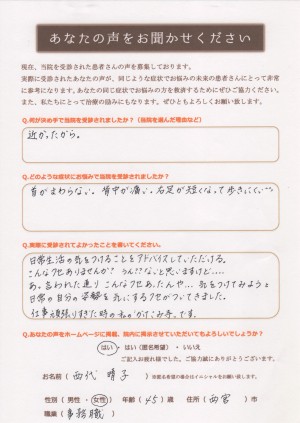 あなたの声をお聞かせください
現在、当院を受診された患者さんの声を募集しております。
実際に受診されたあなたの声が、同じような症状でお悩みの未来の患者さんにとって非常
に参考になります。あなたの同じ症状でお悩みの方を救済するためにぜひご協力ください。
また、私たちにとって治療の励みにもなります。ぜひともよろしくお願い致します。
Q.何が決め手で当院を受診されましたか?(当院を選んだ理由など)
近かったから。
Q.どのような症状にお悩みで当院を受診されましたか?
首がまわらない、背中が痛い、右足が短くなって歩きにくい…
Q.実際に受診されてよかったことを書いてください。
日常生活の気をつけることをアドバイスしていただける。
こんなクセありませんか? うん??ないと思いますけど…
あ、言われた通り こんなクセあったんや… 気をつけてみようと
日常の自分の姿勢を気にするクセがついてきました。
仕事頑張りすぎた時の
Q.あなたの声をホームページに掲載、院内に掲示させていただいてもよろしいでしょうか?
はい・はい(匿名希望)・いいえ
ご記入お疲れ様でした。ご協力誠にありがとうございます。
お名前( 西代 晴子 )※匿名希望の場合はイニシャルをお願い致します。
性別(男性・女性) 年齢(45)歳 住所(西宮)市
職業( 事務職 )